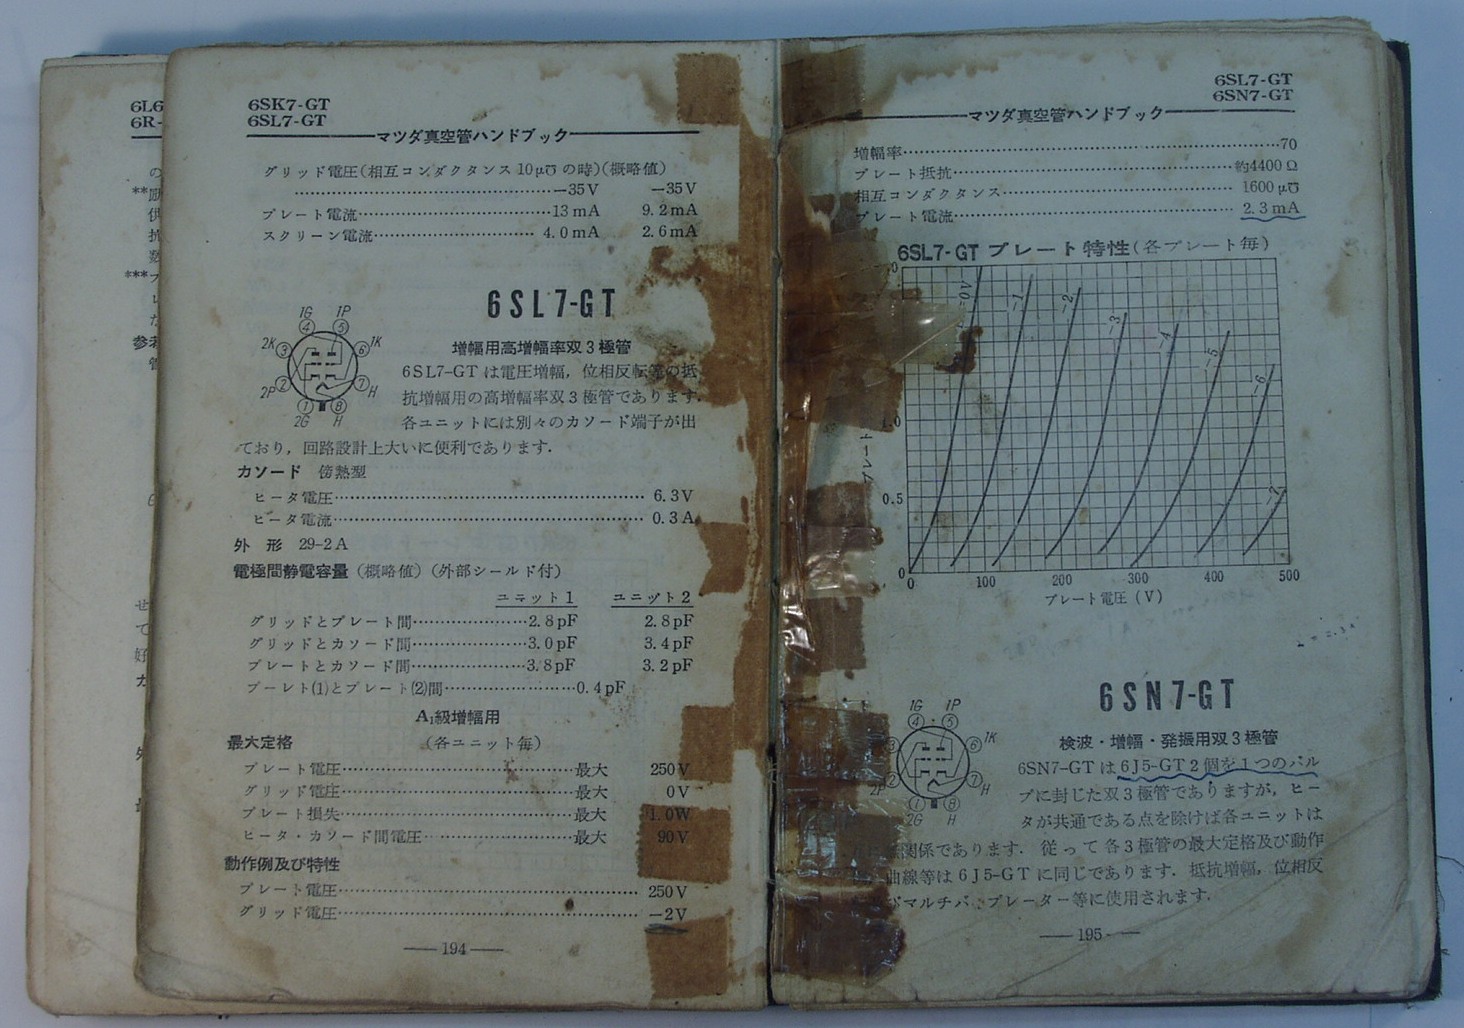 6L6
6R-
の
**
抗
***
参考
管
せ
て
好
カ
6SK7-GT
6SL7-GT
マツダ真空管ハンドブック
グリッド電圧(相互コンダクタンス10μ℧の時)(概略値)
−35V −35V
プレート電流 13mA 9.2mA
スクリーン電流 4.0mA 2.6mA
6SL7-GT
1G 1P
④ ⑤
2K ③ ⑥ 1K
2P ② ⑦ H
① ⑧
2G H
増幅用高増幅率双3極管
6SL7-GTは電圧増幅，位相反転等の抵
抗増幅用の高増幅率双3極管であります．
各ユニットには別々のカソード端子が出
ており，回路設計上大いに便利であります．
カソード 傍熱型
ヒータ電圧 6.3V
ヒータ電流 0.3A
外 形 29-2A
電極間静電容量(概略値)(外部シールド付)
ユニット1 ユニット2
グリッドとプレート間 2.8pF 2.8pF
グリッドとカソード間 3.0pF 3.4pF
プレートとカソード間 3.8pF 3.2pF
プーレト(1)とプレート(2)間 0.4pF
A₁級増幅用
最大定格 (各ユニット毎)
プレート電圧 最大 250V
グリッド電圧 最大 0V
プレート損失 最大 1.0W
ヒータ・カソード間電圧 最大 90V
動作例及び特性
プレート電圧 250V
グリッド電圧 −2V
— 194 —
6SL7-GT
6SN7-GT
マツダ真空管ハンドブック
増幅率 70
プレート抵抗 約4400Ω
相互コンダクタンス 1600μ℧
プレート電流 2.3mA
6SL7-GT プレート特性(各プレート毎)
=0V −1 −2 −3 −4 −5 −6 −7
.0
1.0
0.5
0
0 100 200 300 400 500
プレート電圧(V)
6SN7-GT
1G 1P
④ ⑤
③ ⑥ 1K
2P ② ⑦ H
① ⑧
2G H
検波・増幅・発振用双3極管
6SN7-GTは6J5-GT2個を1つのバル
ブに封じた双3極管でありますが，ヒー
タが共通である点を除けば各ユニットは
関係であります．従って各3極管の最大定格及び動作
曲線等は6J5-GTに同じであります．抵抗増幅，位相反
マルチバイブレーター等に使用されます．
— 195 —